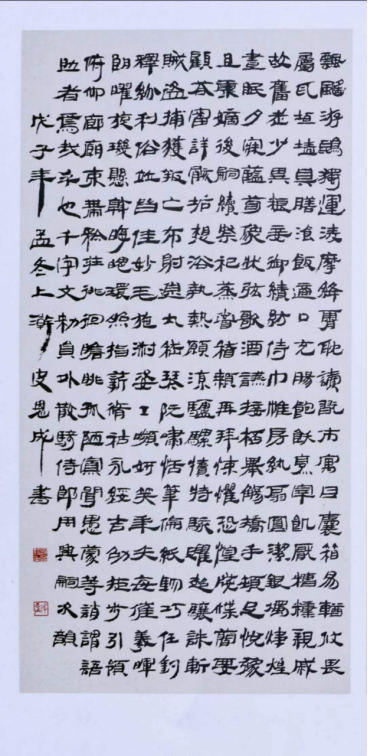 飄颻游鵾獨運凌摩絳霄耽讀翫市寓目囊箱易輶攸畏
屬耳垣墻具膳飡飯適口充腸飽飫烹宰飢厭糟糠親戚
故舊老少異粮妾御績紡侍巾帷房紈扇圓潔銀燭煒煌
晝眠夕寐藍筍象牀弦歌酒讌接杯舉觴矯手頓足悅豫
且康嫡後嗣續祭祀蒸嘗稽顙再拜悚懼恐惶牋牒簡要
顧答審詳骸垢想浴執熱願涼驢騾犢特駭躍超驤誅斬
賊盜捕獲叛亡布射遼丸嵇琴阮嘯恬筆倫紙鈞巧任釣
釋紛利俗並皆佳妙毛施淑姿工顰妍笑年矢每催羲暉
朗曜旋璣懸斡晦魄環照指薪脩祜永綏吉劭矩步引領
俯仰廊廟束帶矜莊徘徊瞻眺孤陋寡聞愚蒙等誚謂語
助者焉哉乎也千字文勑員外散騎侍郎周興嗣次韻
戊子年孟冬上澣史恩成書